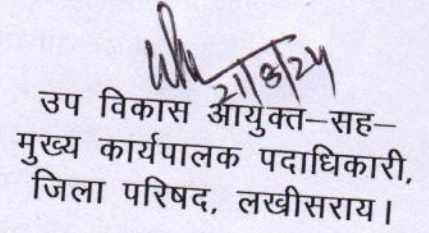 21/8/24
उप विकास आयुक्त–सह–
मुख्य कार्यपालक पदाधिकारी,
जिला परिषद, लखीसराय।